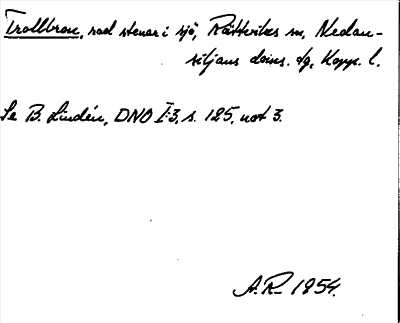 Trollbron, rad stenar i sjö, Rättviks sn, Nedan-
siljans doms. tg, Kopp. l.
Se B. Lindén, DNO I:3, s. 125, not 3.
A.R. 1954.